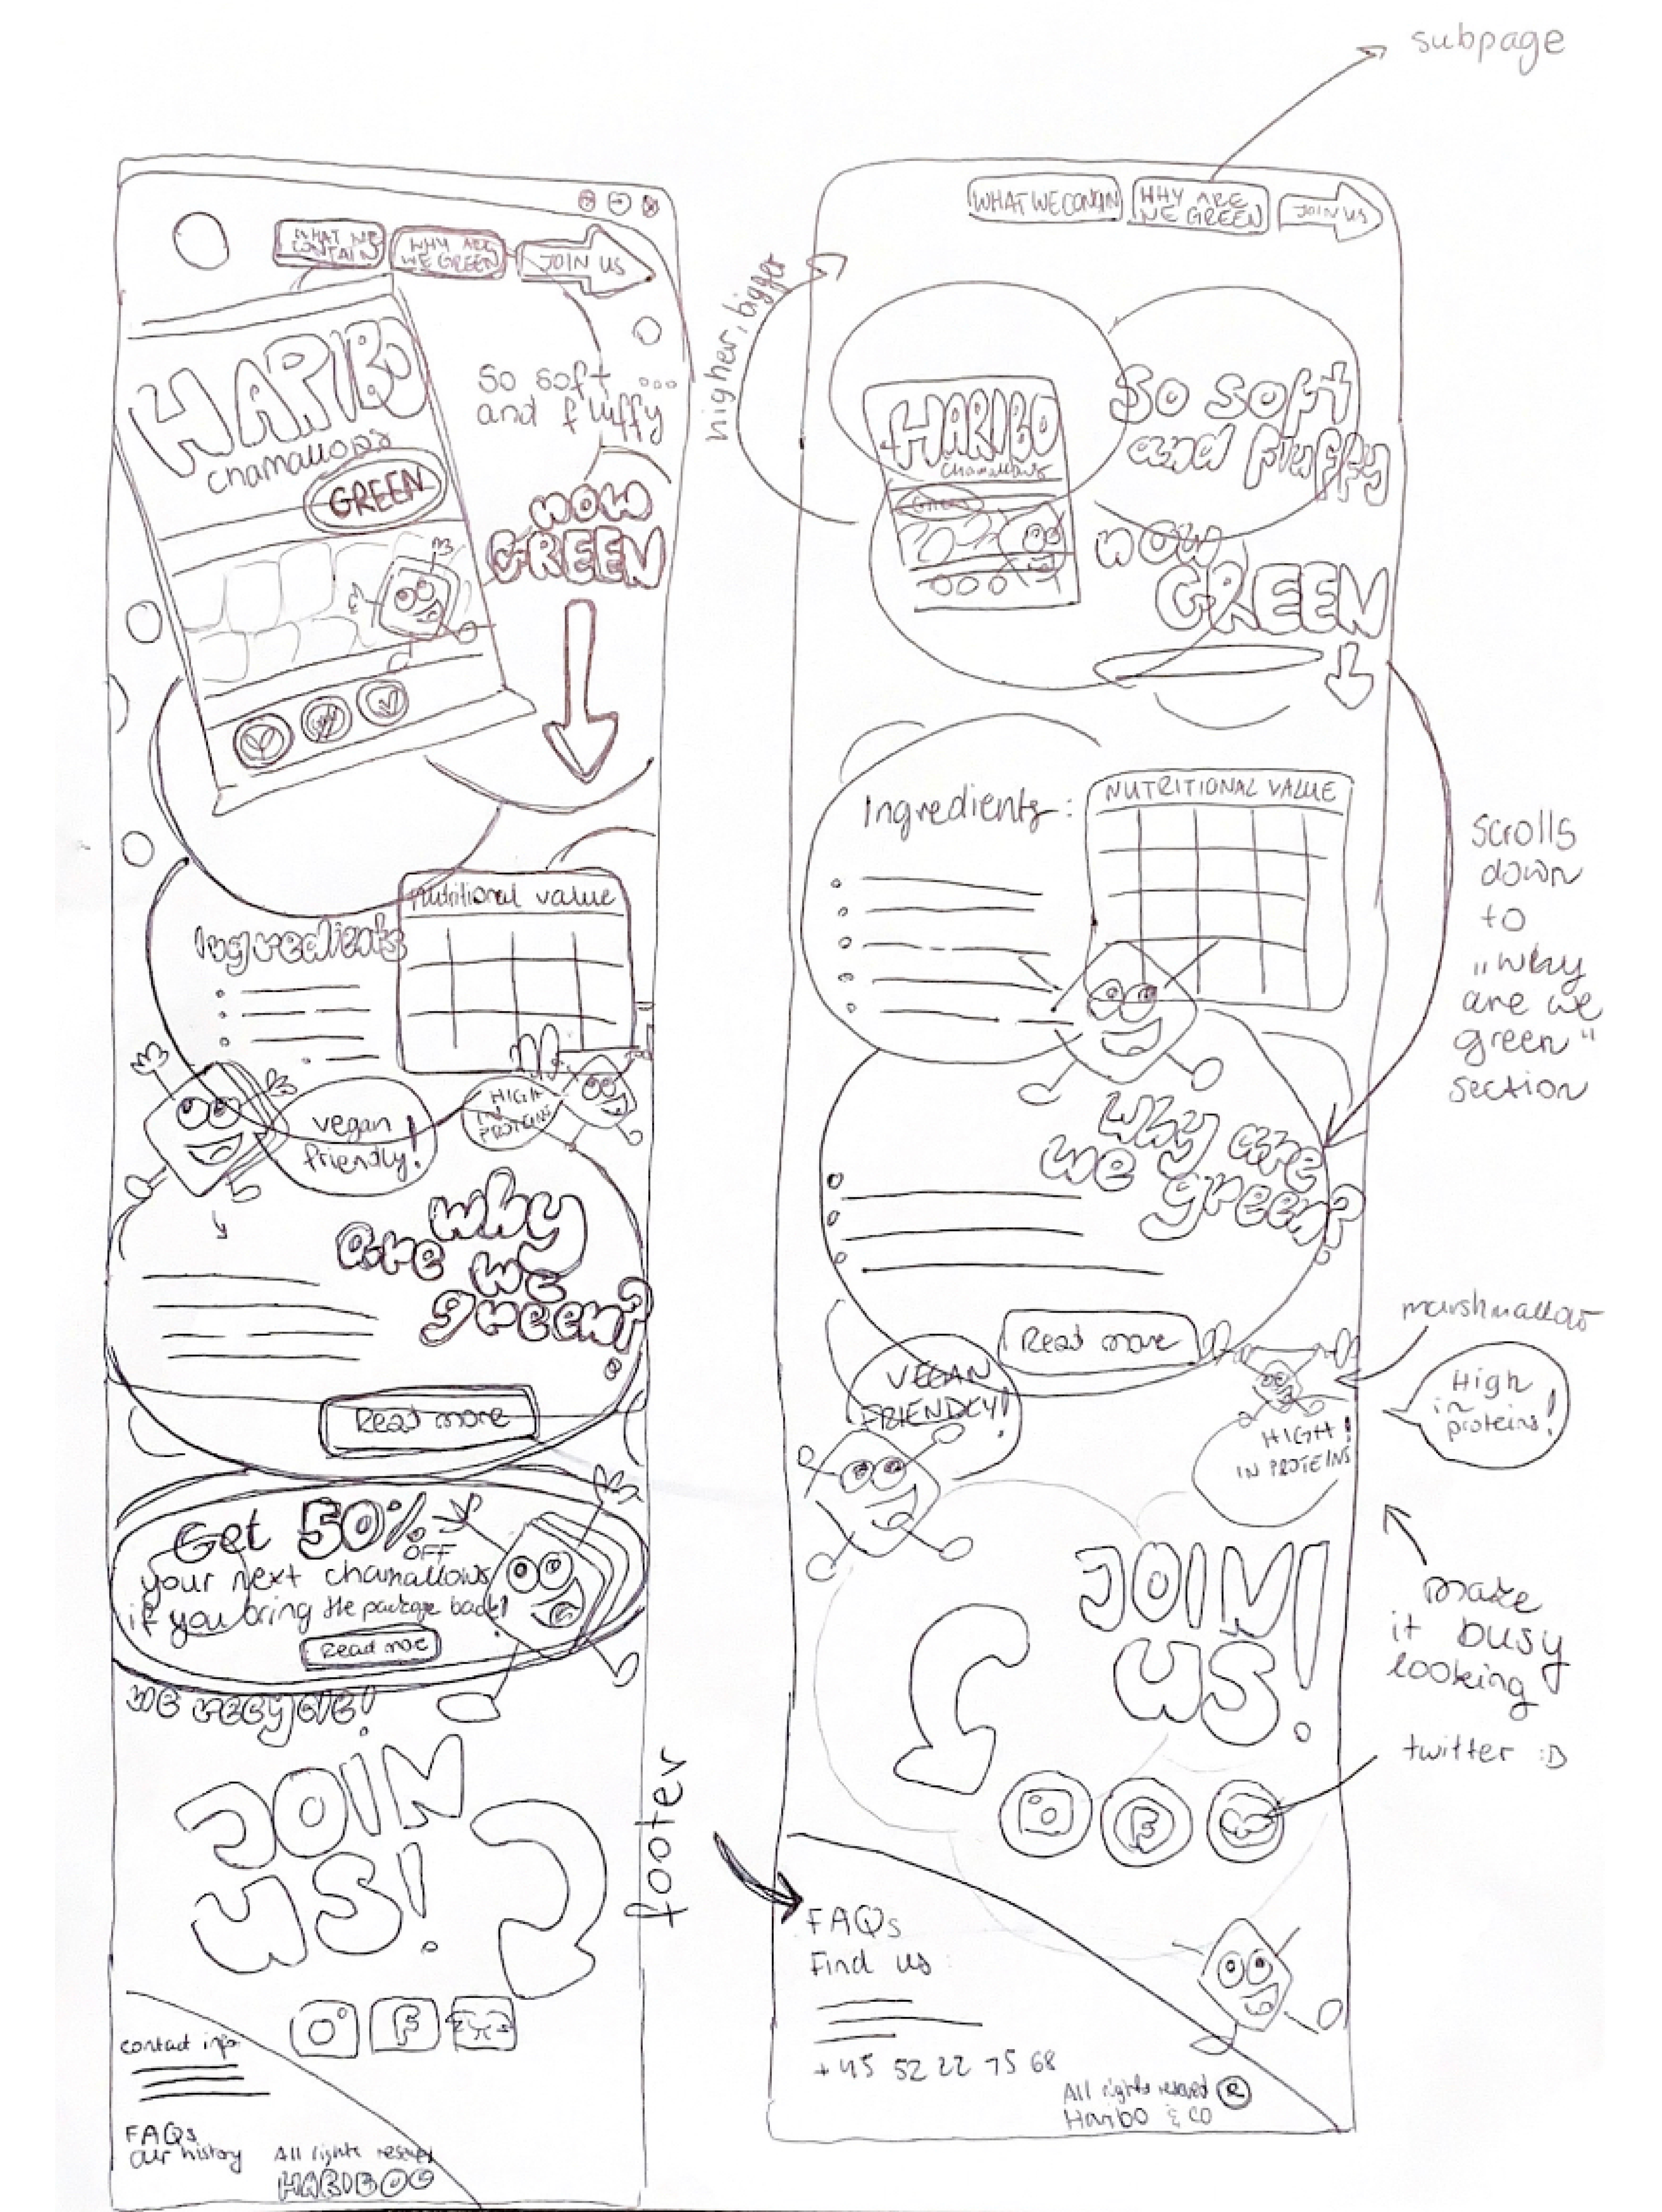 subpage
WHAT WE
CONTAIN
WHY ARE
WE GREEN
JOIN US
HARIBO
chamallows
GREEN
So soft ...
and fluffy
now
GREEN
Ingredients
Nutritional value
vegan
friendly!
HIGH
IN
PROTEINS
why
are we
green?
Read more
Get 50%
OFF
your next chamallows
if you bring the package back!
Read more
WE RECYCLE!
JOIN
US!
contact info
FAQs
Our history
All rights reserved
HARIBO
footer
higher, bigger
WHAT WE CONTAIN
WHY ARE
WE GREEN
JOIN US
HARIBO
Chamallows
Green
So soft
and fluffy
now
GREEN
Ingredients:
NUTRITIONAL VALUE
scrolls
down
to
"why
are we
green"
section
Why are
we green?
Read more
marshmallow
VEGAN
FRIENDLY!
High
in
proteins!
HIGH!
IN PROTEINS
JOIN
US!
make
it busy
looking
twitter :D
FAQs
Find us
+45 52 22 75 68
All rights reserved ®
Haribo & CO